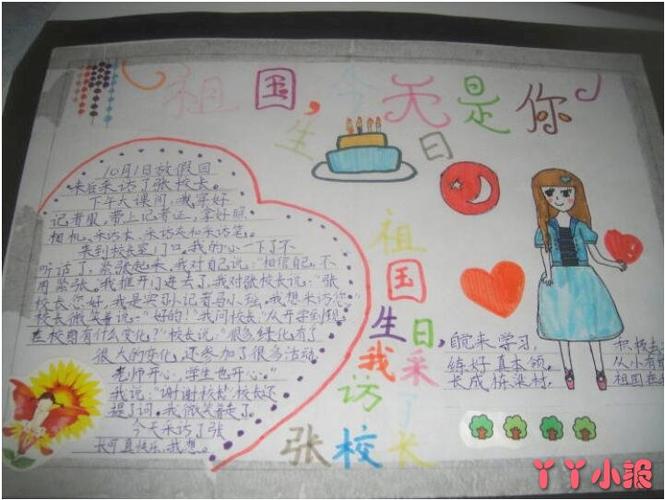 祖国,今天是你
生日
10月1日放假回
来后采访了张校长。
下午大课间,我穿好
记者服,带上记者证,拿好照
相机、采访本、采访夹和采访笔。
来到校长室门口,我的心一下子不
听话了,紧张起来,我对自己说:"相信自己,不
用紧张。我推开门进去了,我对张校长说:"张
校长您好,我是实小记者马小瑶,我想采访您。"
校长微笑着说:"好的!"我问校长:"从开学到现
在校园有什么变化?"校长说:"很多绿化有了
很大的变化,还参加了很多活动,
老师开心,学生也开心。"
我说:"谢谢校长,校长还
提了词,我微笑着走了。
今天采访了张
长可真快乐,我想。
祖国生日,我采访了张校长
自觉来学习,
练好真本领,
长成栋梁材,
积极去
从小有
祖国在
丫丫小报